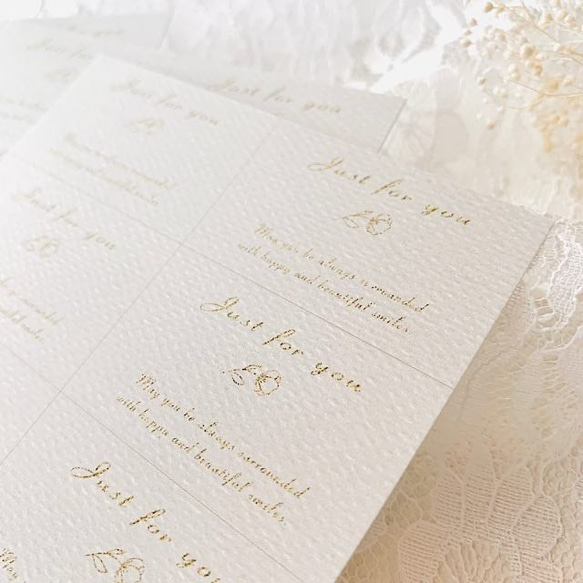 Just for you
Just for you
Just for you
May you be always surrounded
with happy and beautiful smiles.
Just for you
Just for you
May you be always surrounded
with happy and beautiful smiles.
Just for you
May you